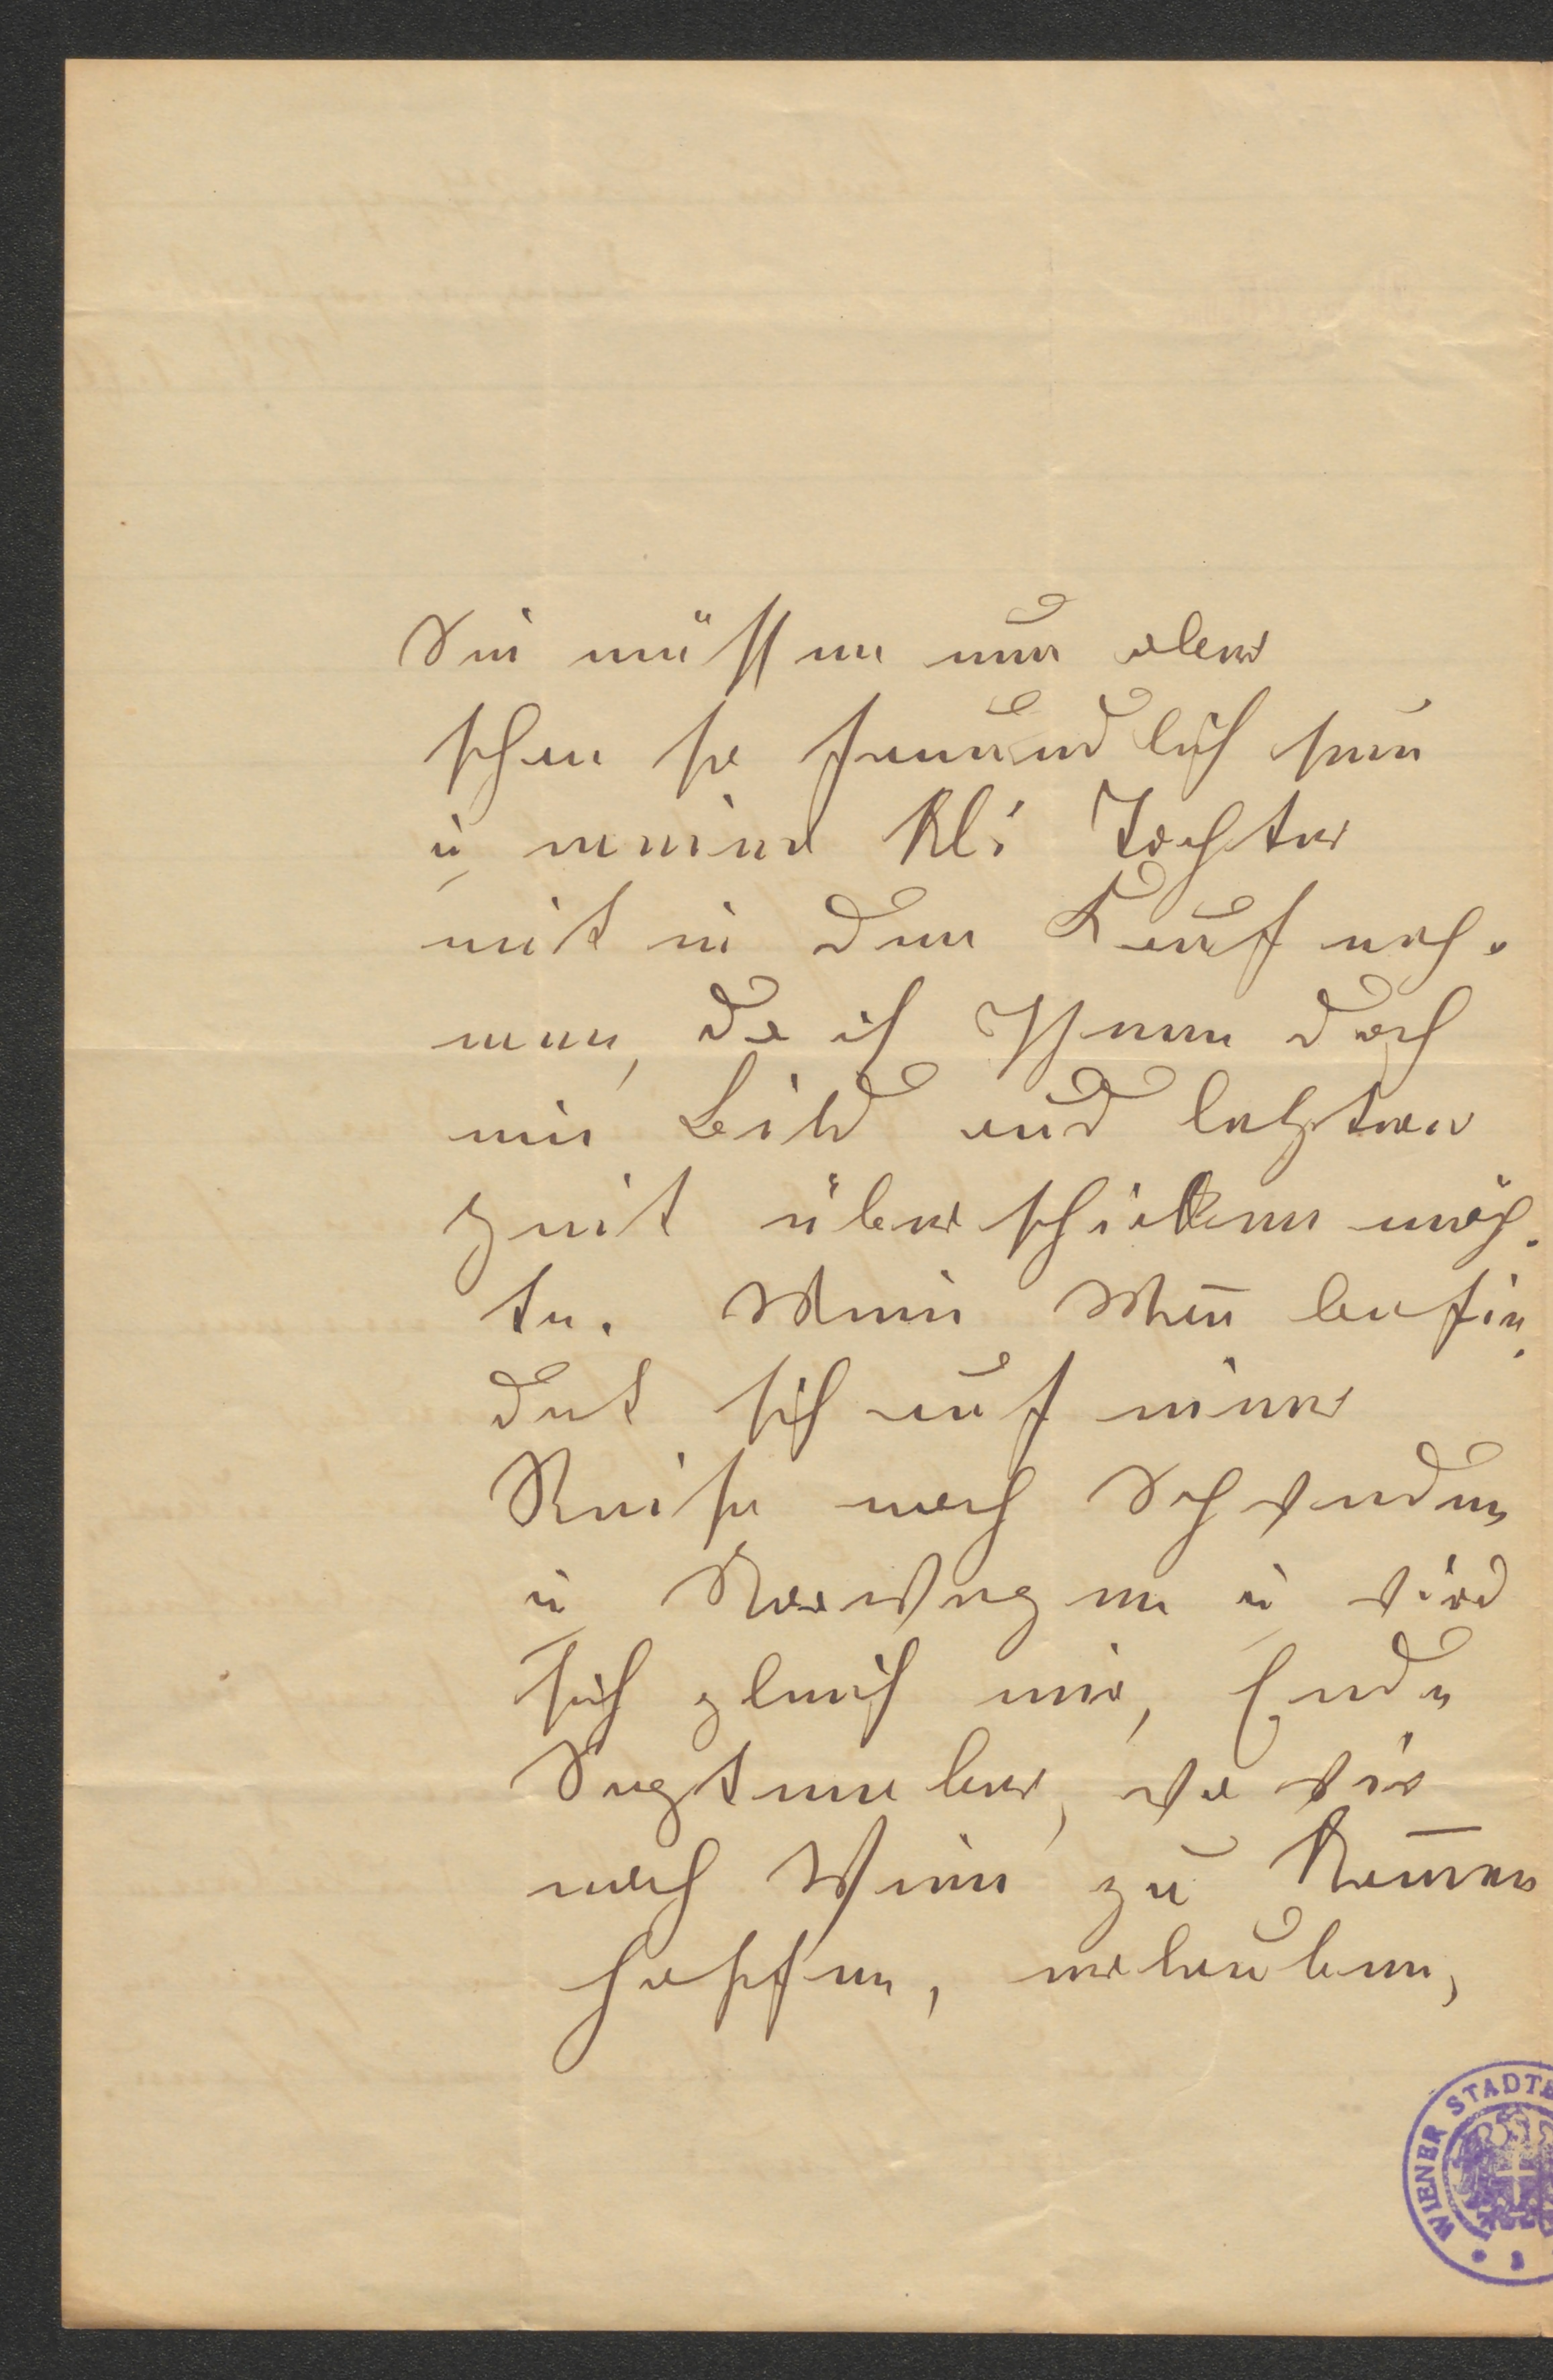 Sie müssen nun aber
schon so freundlich sein
u meine kl: Tochter
mit in den Kauf neh-
men, da ich Ihnen doch
ein Bild aus letzter
Zeit überschicken möch-
te. Mein Mañ befin-
det sich auf einer
Reise nach Schweden
u Norwegen u wird
sich gleich mir, Ende
September, wo wir
nach Wien zu kom̄en
hoffen, erlauben,
WIENER STADTB